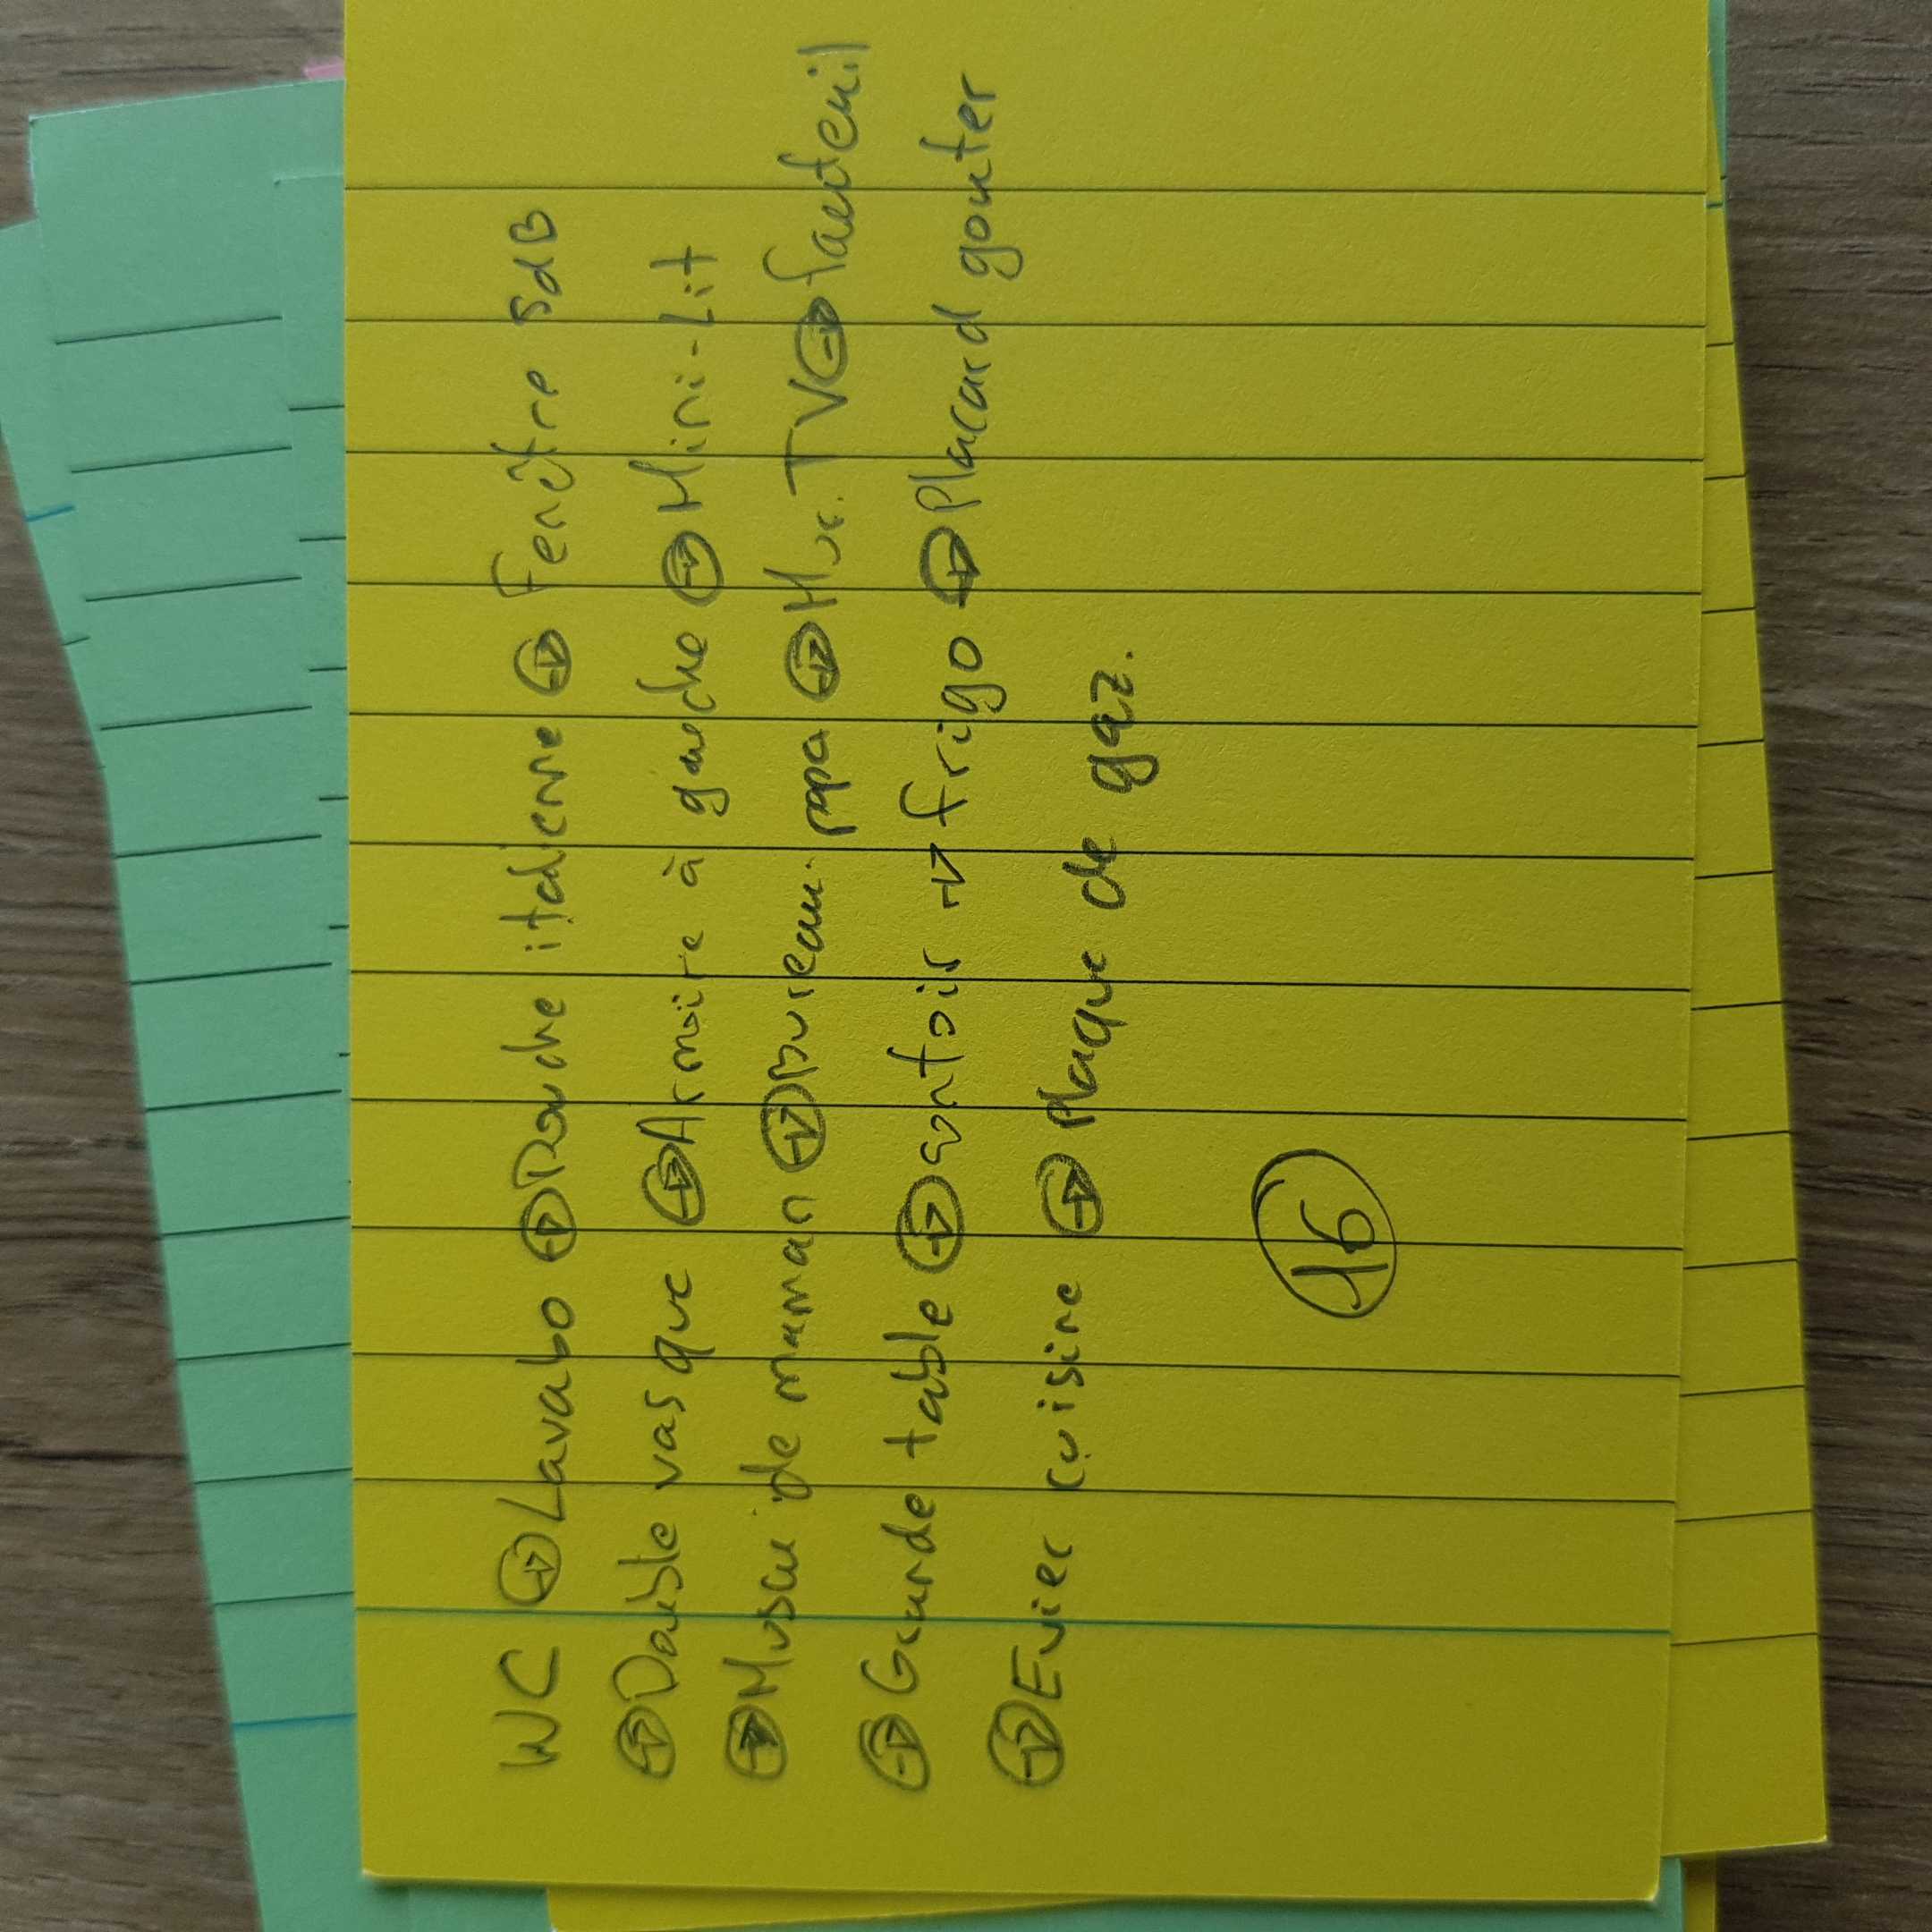 WC → Lavabo → Douche italienne → Fenêtre sdB
→ Double vasque → Armoire à gauche → Mini-Lit
→ Muscu de maman → bureau papa → Mur TV → fauteuil
→ Grande table → contoir → frigo → Placard gouter
→ Evier cuisine → Plaque de gaz.
16